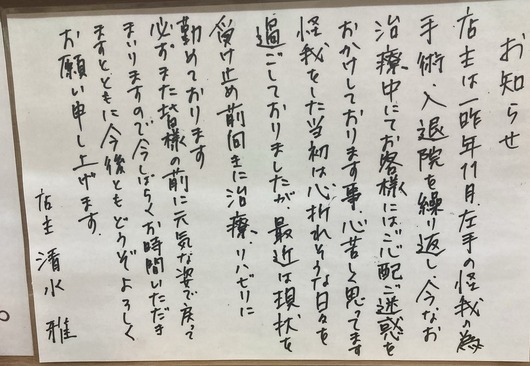 お知らせ
店主は一昨年11月、左手の怪我の為
手術・入退院を繰り返し、今なお
治療中にてお客様にはご心配ご迷惑を
おかけしております事心苦しく思ってます
怪我をした当初は心折れそうな日々を
過ごしておりましたが、最近は現状を
受け止め前向きに治療、リハビリに
勤めております
必ずまた皆様の前に元気な姿で戻って
まいりますので今しばらくお時間いただき
ますとともに今後ともどうぞよろしく
お願い申し上げます。
店主 清水 雅